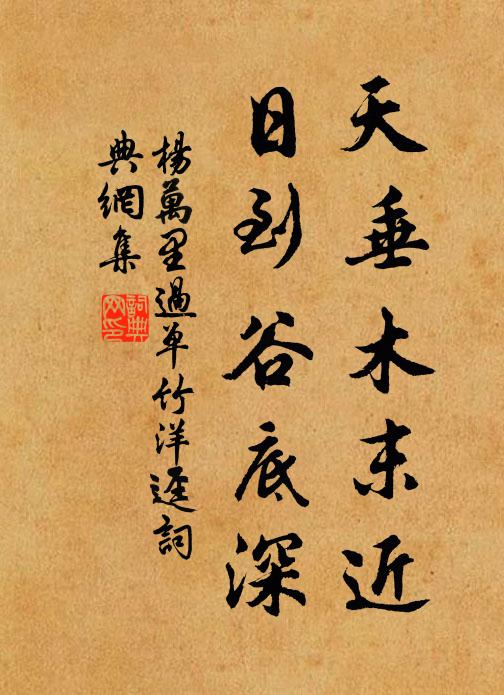 天垂木末近
日到谷底深
楊萬里過单竹洋逕詞
典網集
詞典
网印